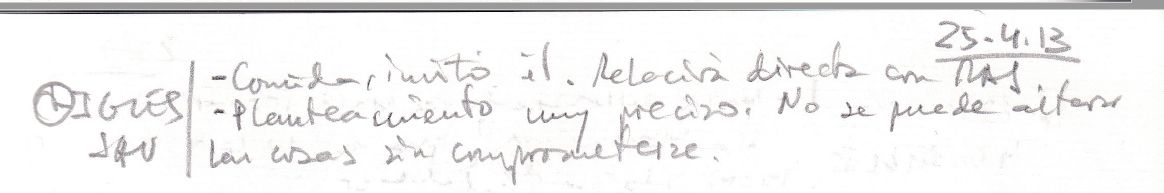 25-4.13
-Comida, invitó él. Relación directa con
IGLES -Planteamiento muy preciso. No se puede alterar
las cosas sin comprometerse.